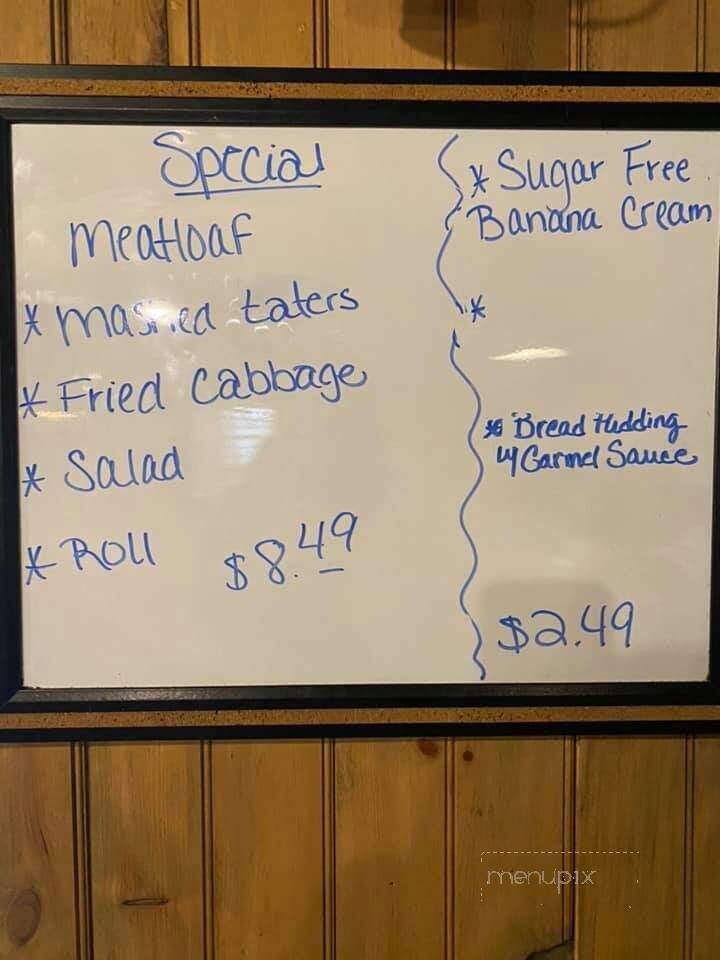 Special
Meatloaf
* Mashed taters
* Fried Cabbage
* Salad
* Roll
$8.49
* Sugar Free
Banana Cream
*
* Bread Pudding
w/ Carmel Sauce
$2.49
menupix